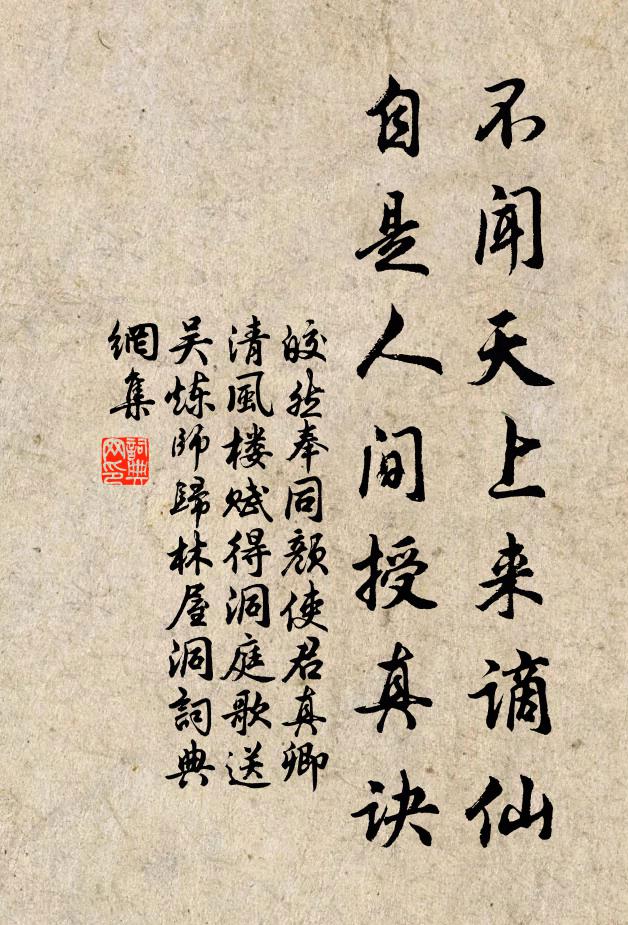 不闻天上来谪仙
自是人间授真诀
皎然奉同颜使君真卿
清風楼赋得洞庭歌送
吴炼师歸林屋洞詞典
網集
詞典网印